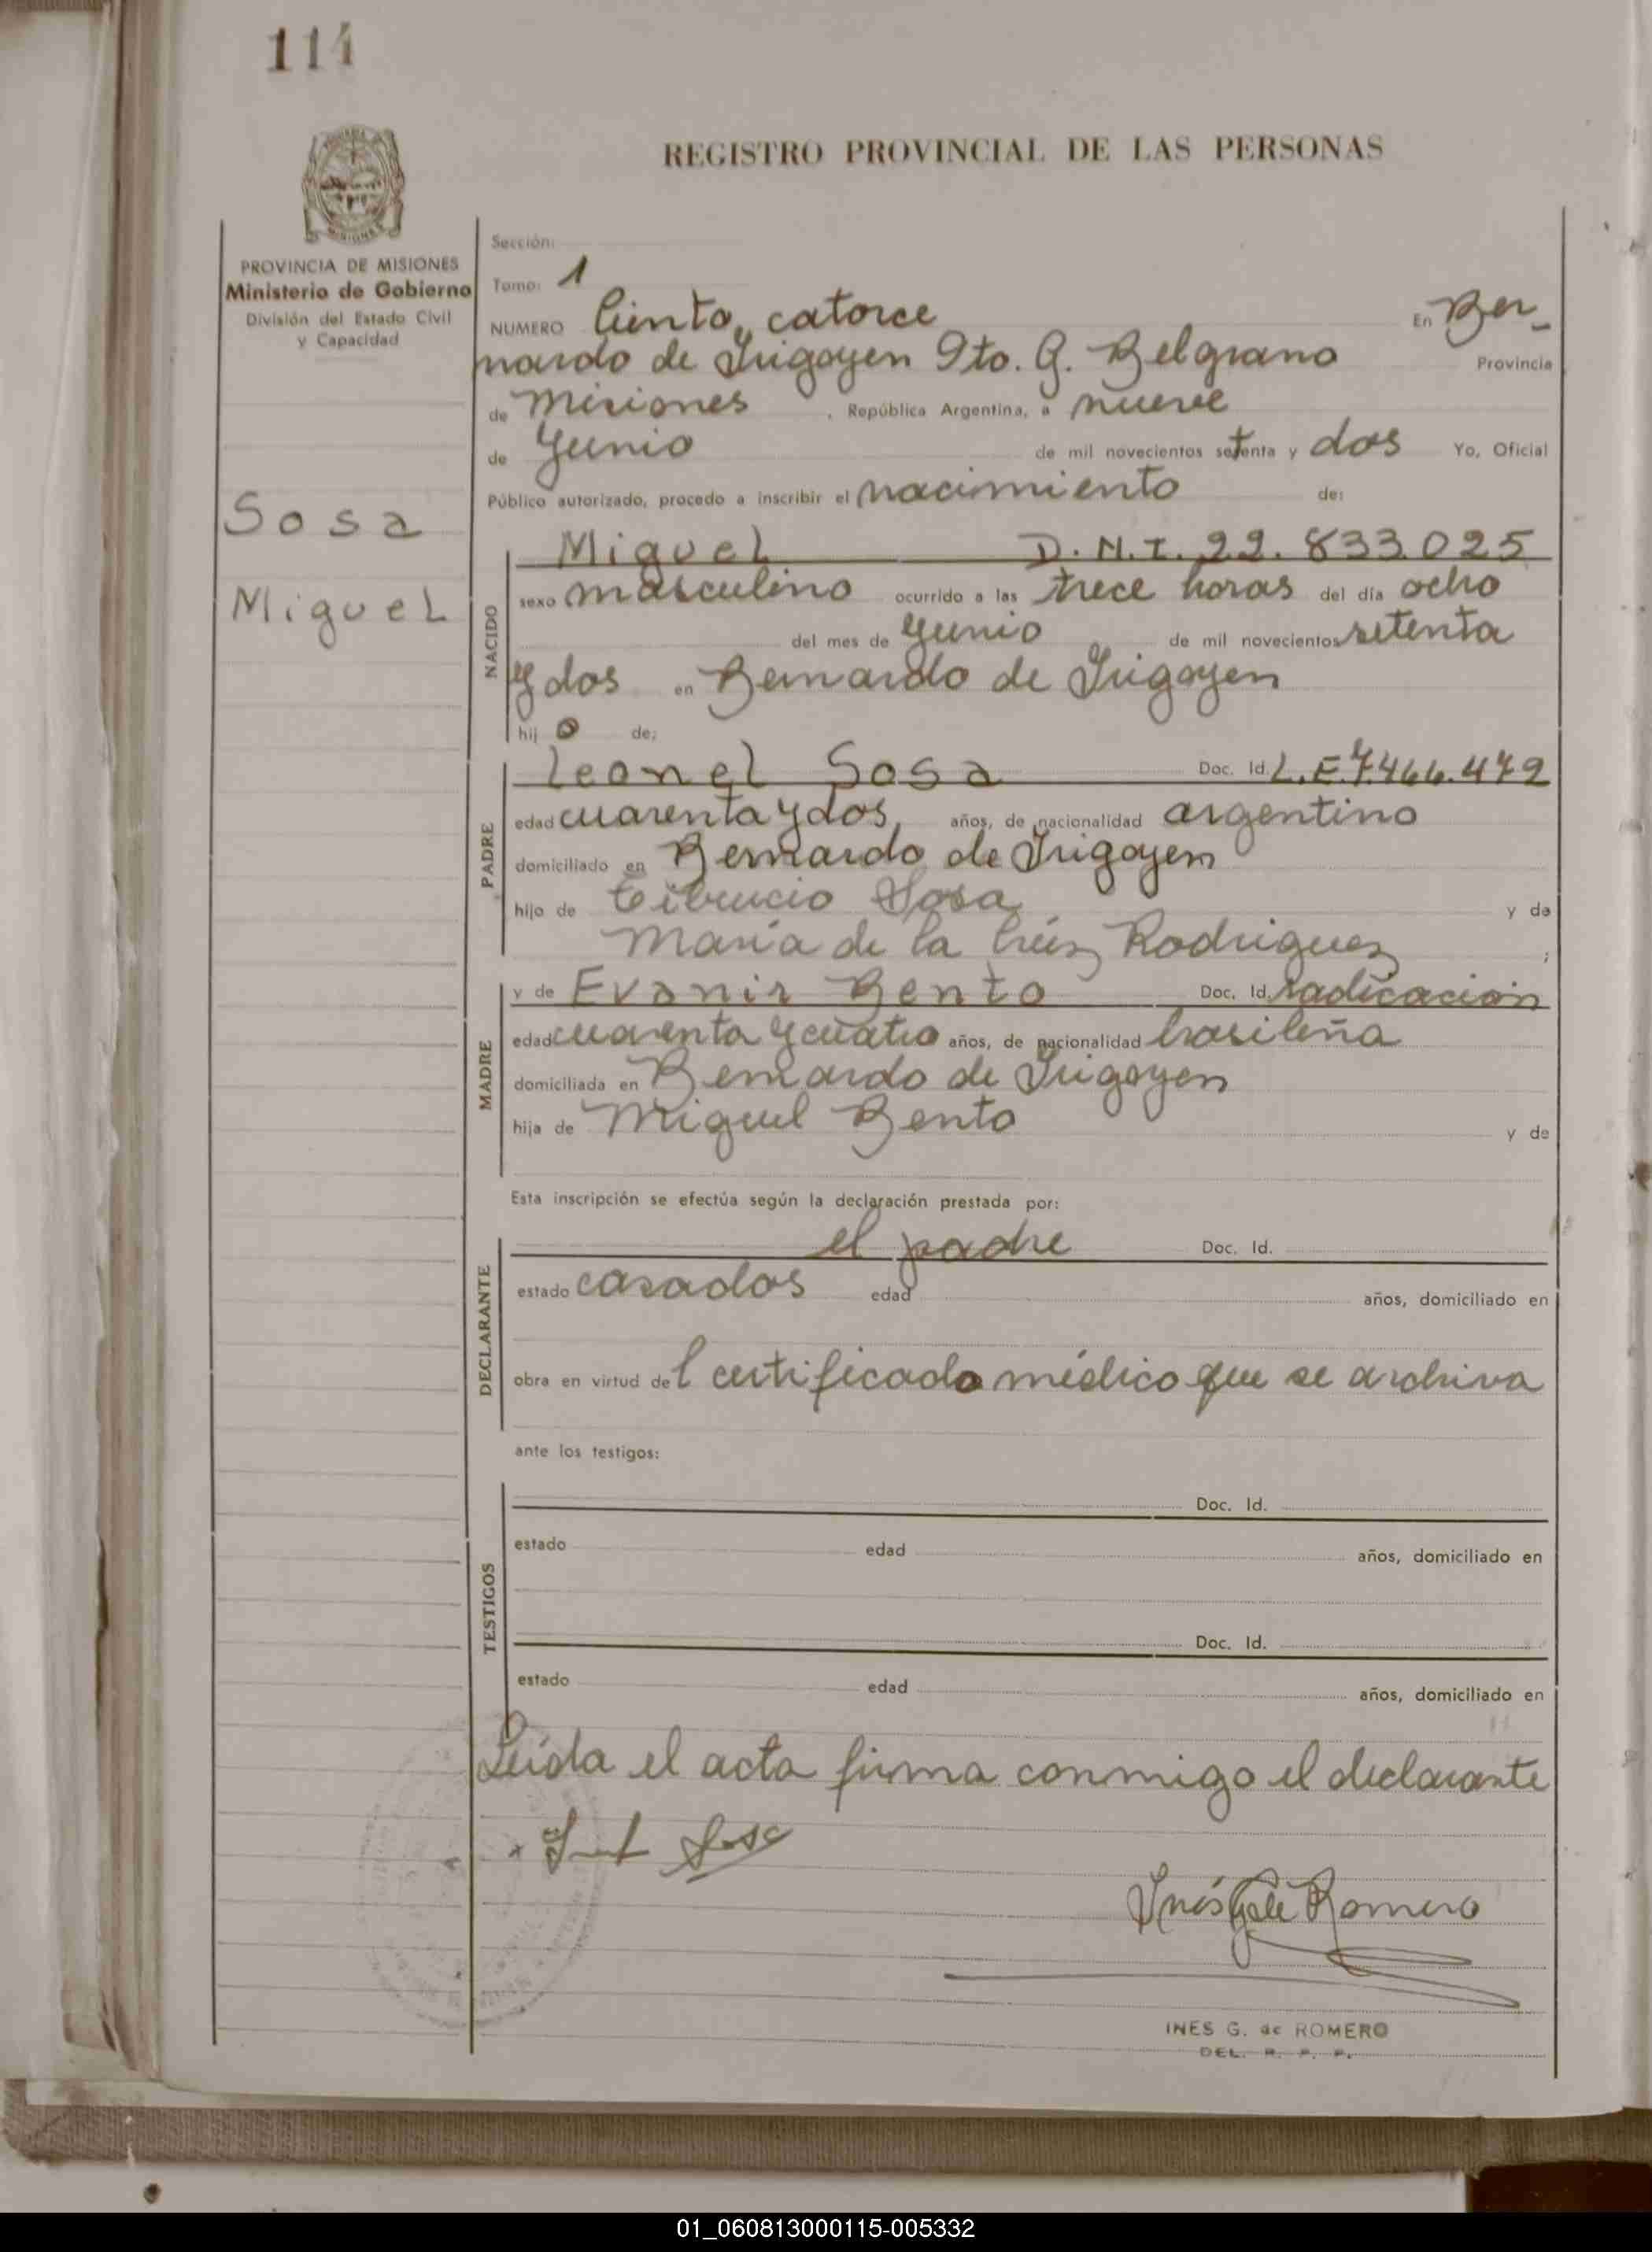 114
REGISTRO PROVINCIAL DE LAS PERSONAS
MISIONES
PROVINCIA DE MISIONES
Ministerio de Gobierno
División del Estado Civil
y Capacidad
Sección:
Tomo: 1
NUMERO Ciento catorce En Ber-
nardo de Irigoyen Dto. G. Belgrano Provincia
de Misiones , República Argentina, a nueve
de Junio de mil novecientos setenta y dos Yo, Oficial
Público autorizado, procedo a inscribir el nacimiento de:
Sosa
Miguel
NACIDO
Miguel D.N.I. 22.833.025
sexo masculino ocurrido a las trece horas del día ocho
del mes de Junio de mil novecientos setenta
y dos en Bernardo de Irigoyen
hij o de:
PADRE
Leonel Sosa Doc. Id. L.E.7.466.472
edad cuarenta y dos años, de nacionalidad argentino
domiciliado en Bernardo de Irigoyen
hijo de Tibrucio Sosa y de
María de la Cruz Rodriguez ;
MADRE
y de Evanir Bento Doc. Id. radicación
edad cuarenta y cuatro años, de nacionalidad brasileña
domiciliada en Bernardo de Irigoyen
hija de Miguel Bento y de
Esta inscripción se efectúa según la declaración prestada por:
DECLARANTE
el padre Doc. Id.
estado casados edad años, domiciliado en
obra en virtud del certificado médico que se archiva
ante los testigos:
TESTIGOS
Doc. Id.
estado edad años, domiciliado en
Doc. Id.
estado edad años, domiciliado en
Leída el acta firma conmigo el declarante
x Sosa
Inés Romero
INES G. de ROMERO
DEL. R. P. P.
01_060813000115-005332